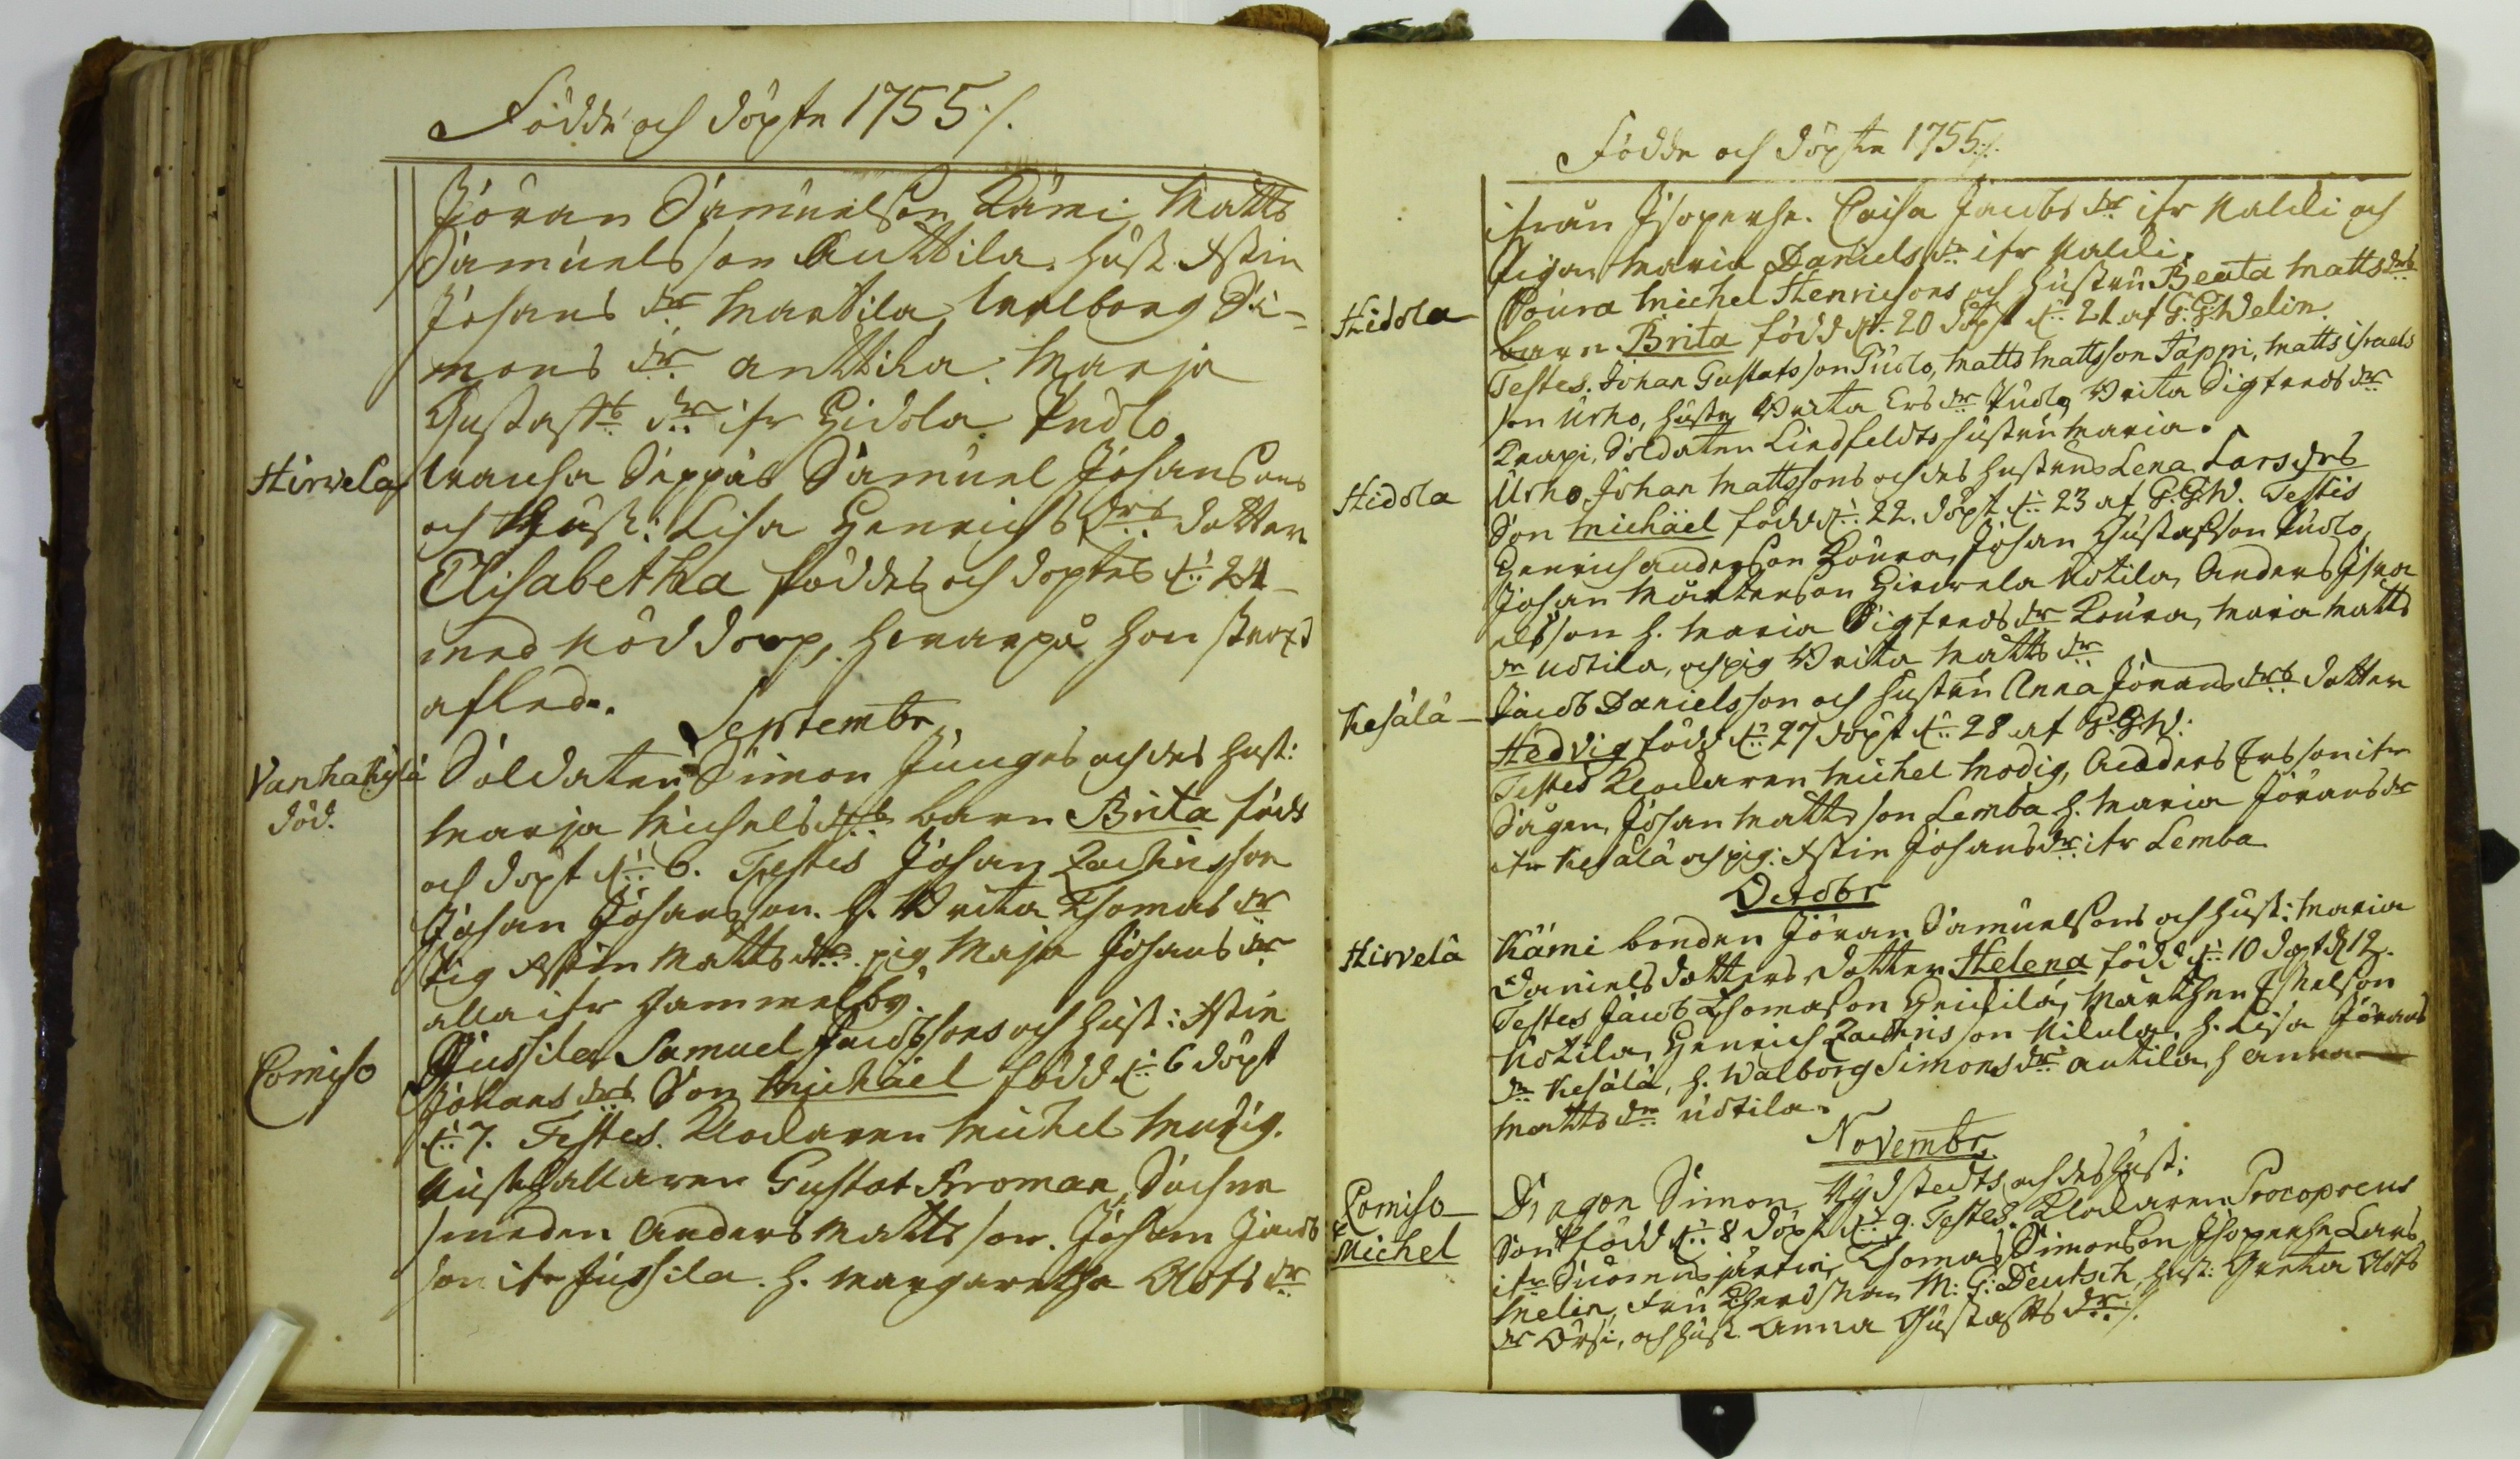 Födde och döpte 1755 /.
Jöran Samuelson Kämi, Matts
Samuelsson Anttila, hust. Stin
Johans dr Martila, Walborg Si-
mons dr anttila. Marja
Gustafs dr ifr Hidola Pudlo
Hirvela
Seppäs Samuel Johansons
och Hust: Lisa Henrichs drs dotter
Elisabetha föddes och döptes d: 24
med nöd dop, hvarpå hon strax
afled.
Septembr
Vanhakylä
död.
Soldaten Simon Junges och des hust:
Marja Michelsdrs barn Brita född
och döpt d: 6. Testes Johan Zachrisson
Johan Johansson. h. Brita Thomas dr
pig Stin Matts dr. pig Maja Johans dr
alla ifr Gammelby.
Comiso
Jussila Samuel Jacobsons och hust: Stin
Johans drs Son Michäel född d: 6 döpt
d: 7. Testes. Klockaren Michel Modig.
Gustaf Froman, Sochne
smeden Anders Mattsson. Johan Jacob
son ifr Jussila. h. Margaretha Olofs dr
Födde och döpte 1755 /.
ifrån Isoperhe. Caisa Jacobs dr ifr Kalcki och
Pigan Maria Daniels dr ifr Kalcki.
Hidola
Coura Michel Henricsons och hustru Beata Matts drs
barn Brita född d: 20 döpt d: 21 af G:G:Welin.
Testes. Johan Gustafsson Pudlo, Matts Mattsson Täppi, Matts Israels
son Urho, hustr Brita Ers dr Pudlo, Brita Sigfreds dr
Knapi, Soldaten Lindfeldts hustru Maria.
Hidola
Urho Johan Mattssons och des hustrus Lena Lars drs
Son Michäel född d: 22. döpt d: 23 af G:G:W. Testis
Henrich anderson Koura, Johan Gustafson Pudlo,
Johan Mårtenson Hirvela Uotila, Anders Isra
elsson h. Maria Sigfreds dr Koura, Maria Matts
dr Uotila, och pig Brita Matts dr
Kesälä
Jacob Danielsson och hustru Anna Jörans drs dotter
Hedvig född d: 27 döpt d: 28 af G:G:W:
Testes Klockaren Michel Modig, Anders Ersson ifr
Sågen, Johan Mattsson Lemba h. Maria Jörans dr
ifr Kesälä och pig: Stin Johans dr ifr Lemba
Octobr
Hirvelä
Kämi bonden Jöran Samuelsons och hust: Maria
Danielsdotters dotter Helena född d: 10 döpt d 12.
Testes Jacob Thomason Heickilä, Mårthen
Uotila, Henrich Zachrisson Mikula, h. Lisa Jörans
dr Kesälä, h. Walborg Simons dr antila, h anna
Matts dr uotila.
Novembr.
Comiso
Michel
Dragon Simon Nydstedts och des hust:
Son född d: 8 döpt d: 9. Testes. Klockaren Procopoeus
ifr Thomas Simonson Isoperhe Lars
Melin, fru M: G: Deutsch, hust: Greta Olofs
dr Orsi, och hust Anna Gustafs dr /.